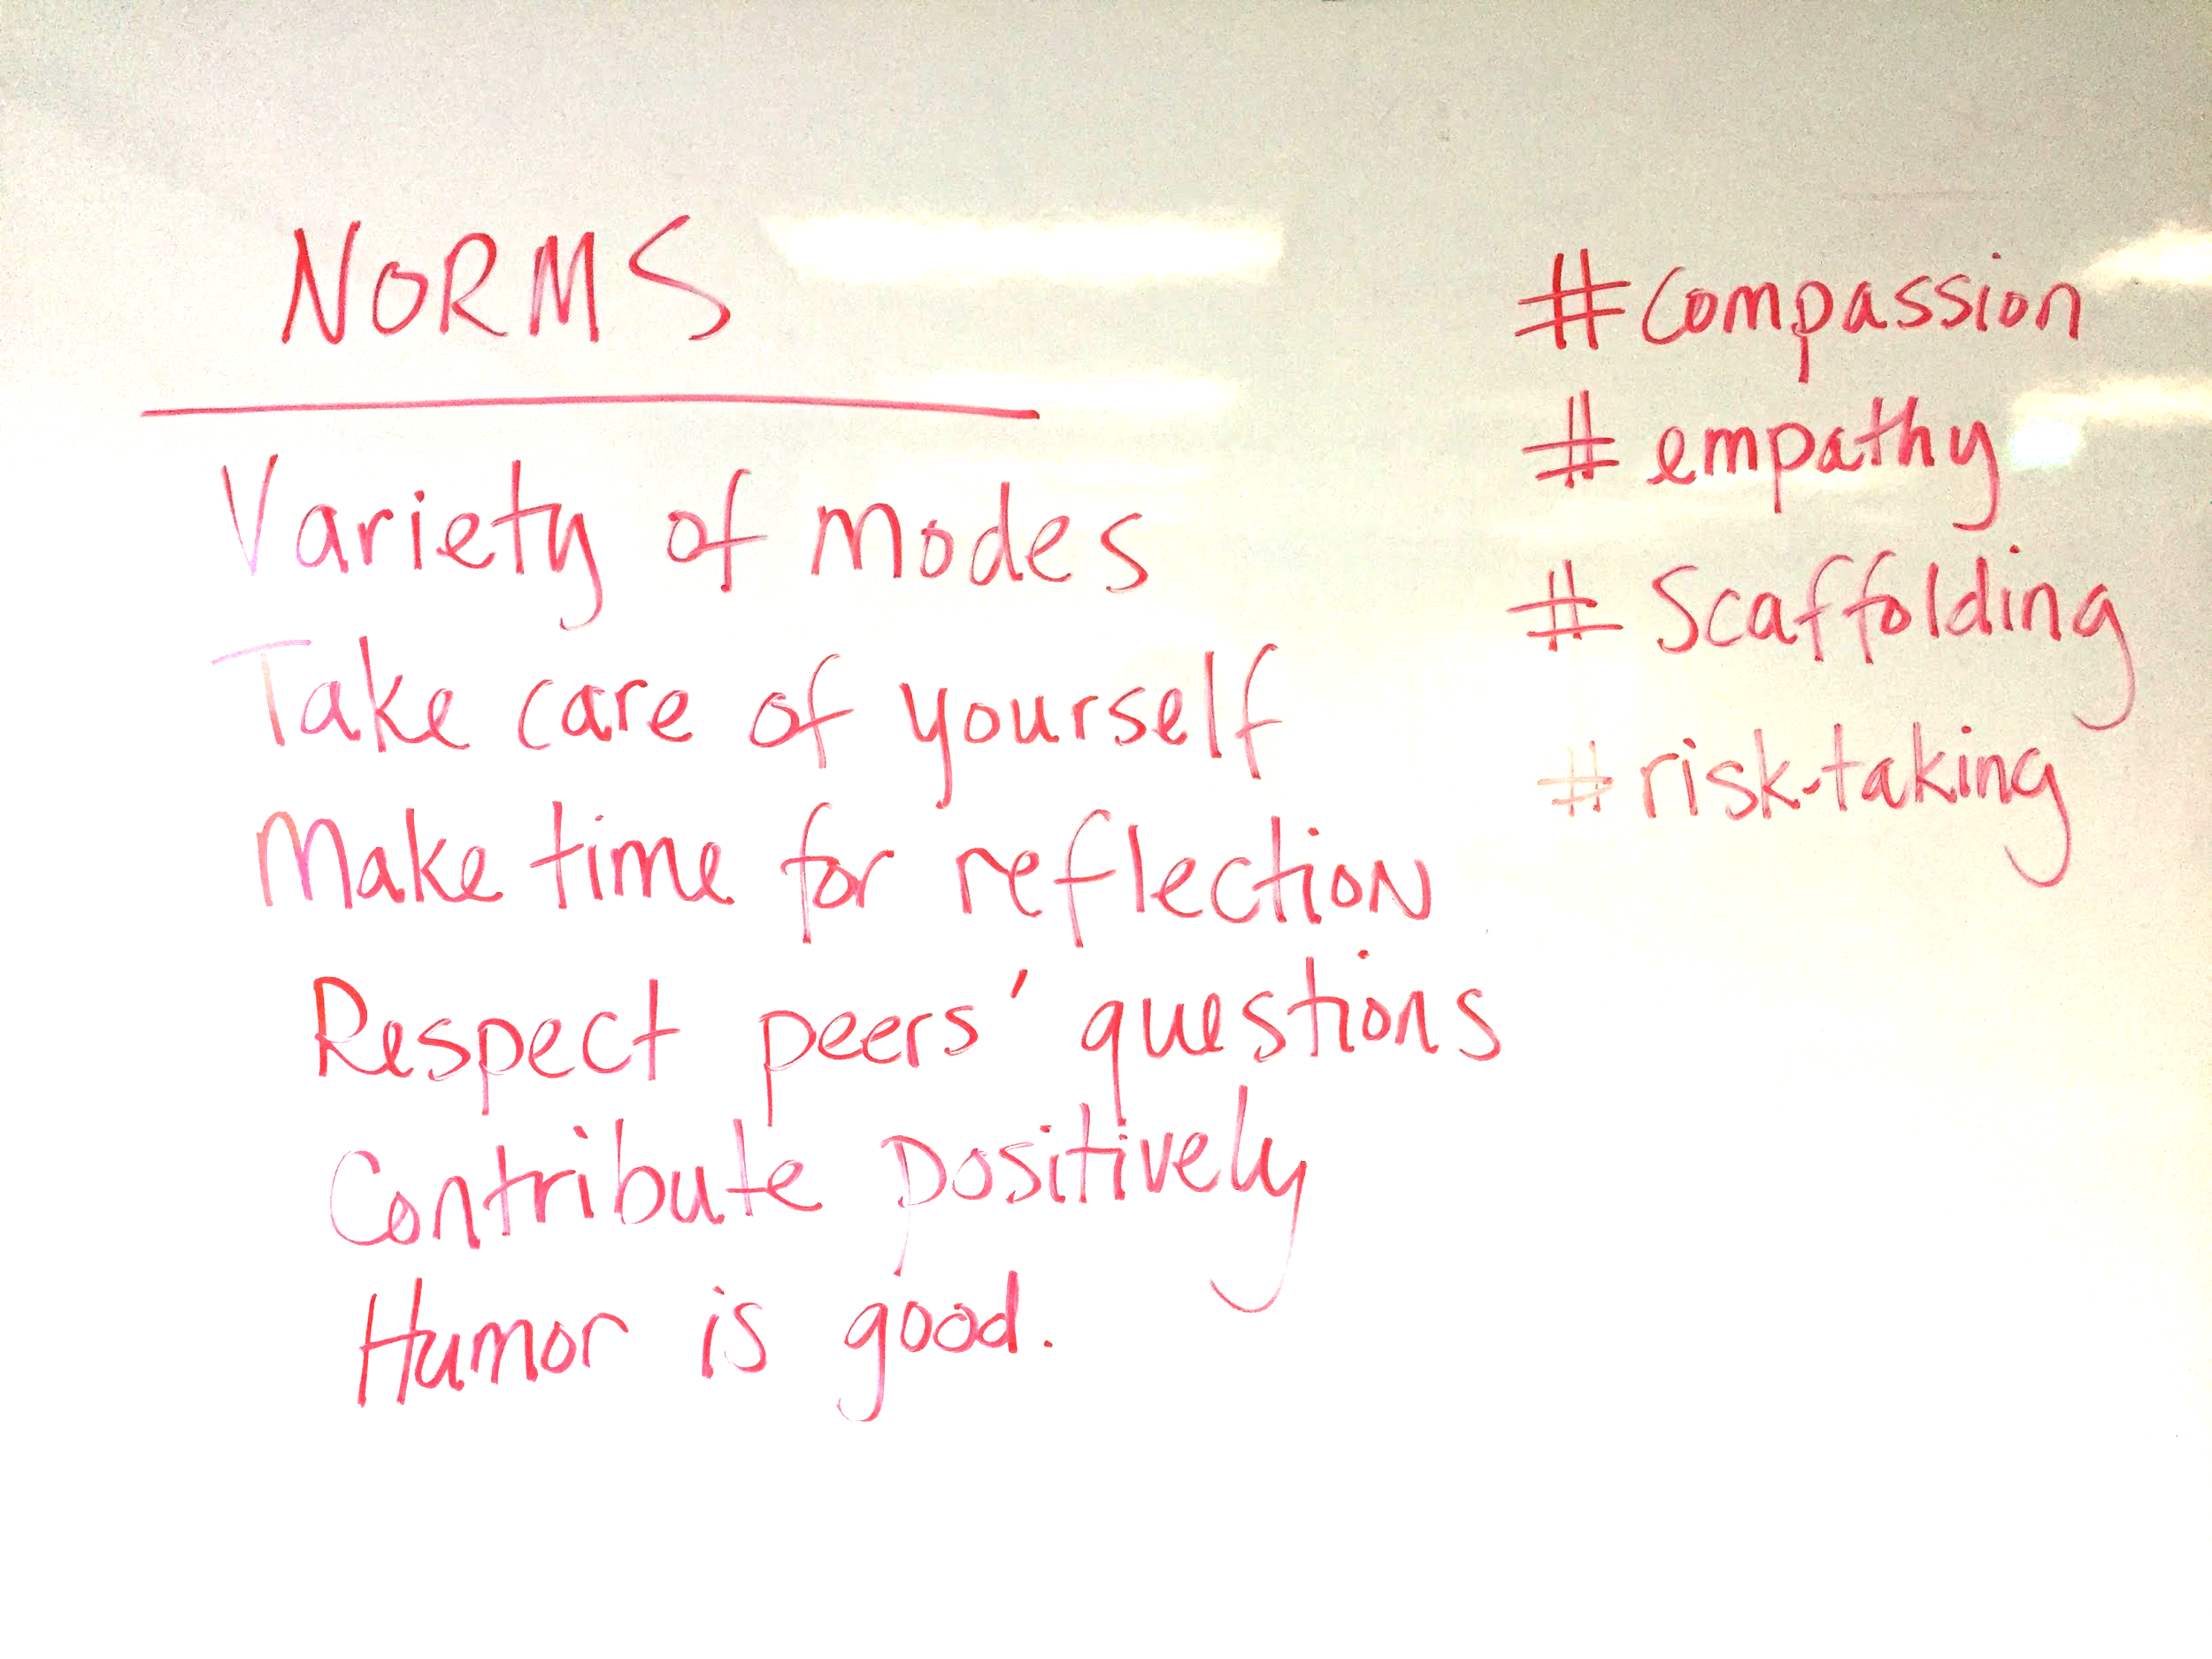 NORMS
Variety of modes
Take care of yourself
Make time for reflection
Respect peers' questions
Contribute positively
Humor is good.
#compassion
# empathy
# Scaffolding
#risk-taking